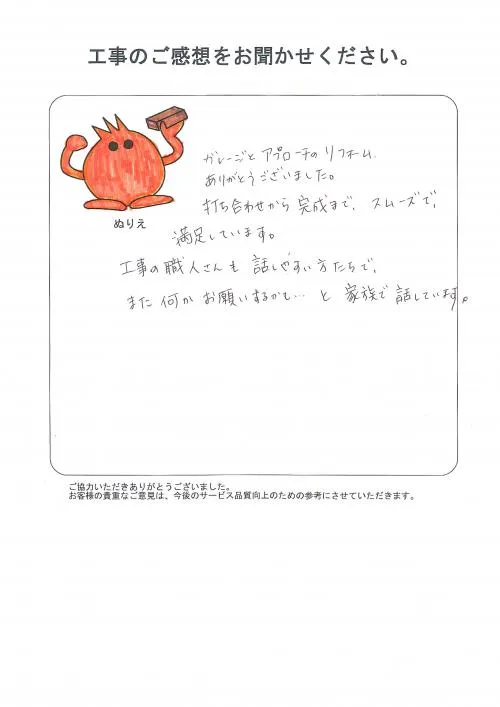 工事のご感想をお聞かせください。
ぬりえ
ガレージと アプローチの リフォーム
ありがとうございました。
打ち合わせから 完成まで、スムーズで、
満足しています。
工事の職人さんも 話しやすい方たちで、
また 何か お願いするかも… と 家族で 話しています。
ご協力いただきありがとうございました。
お客様の貴重なご意見は、今後のサービス品質向上のための参考にさせていただきます。